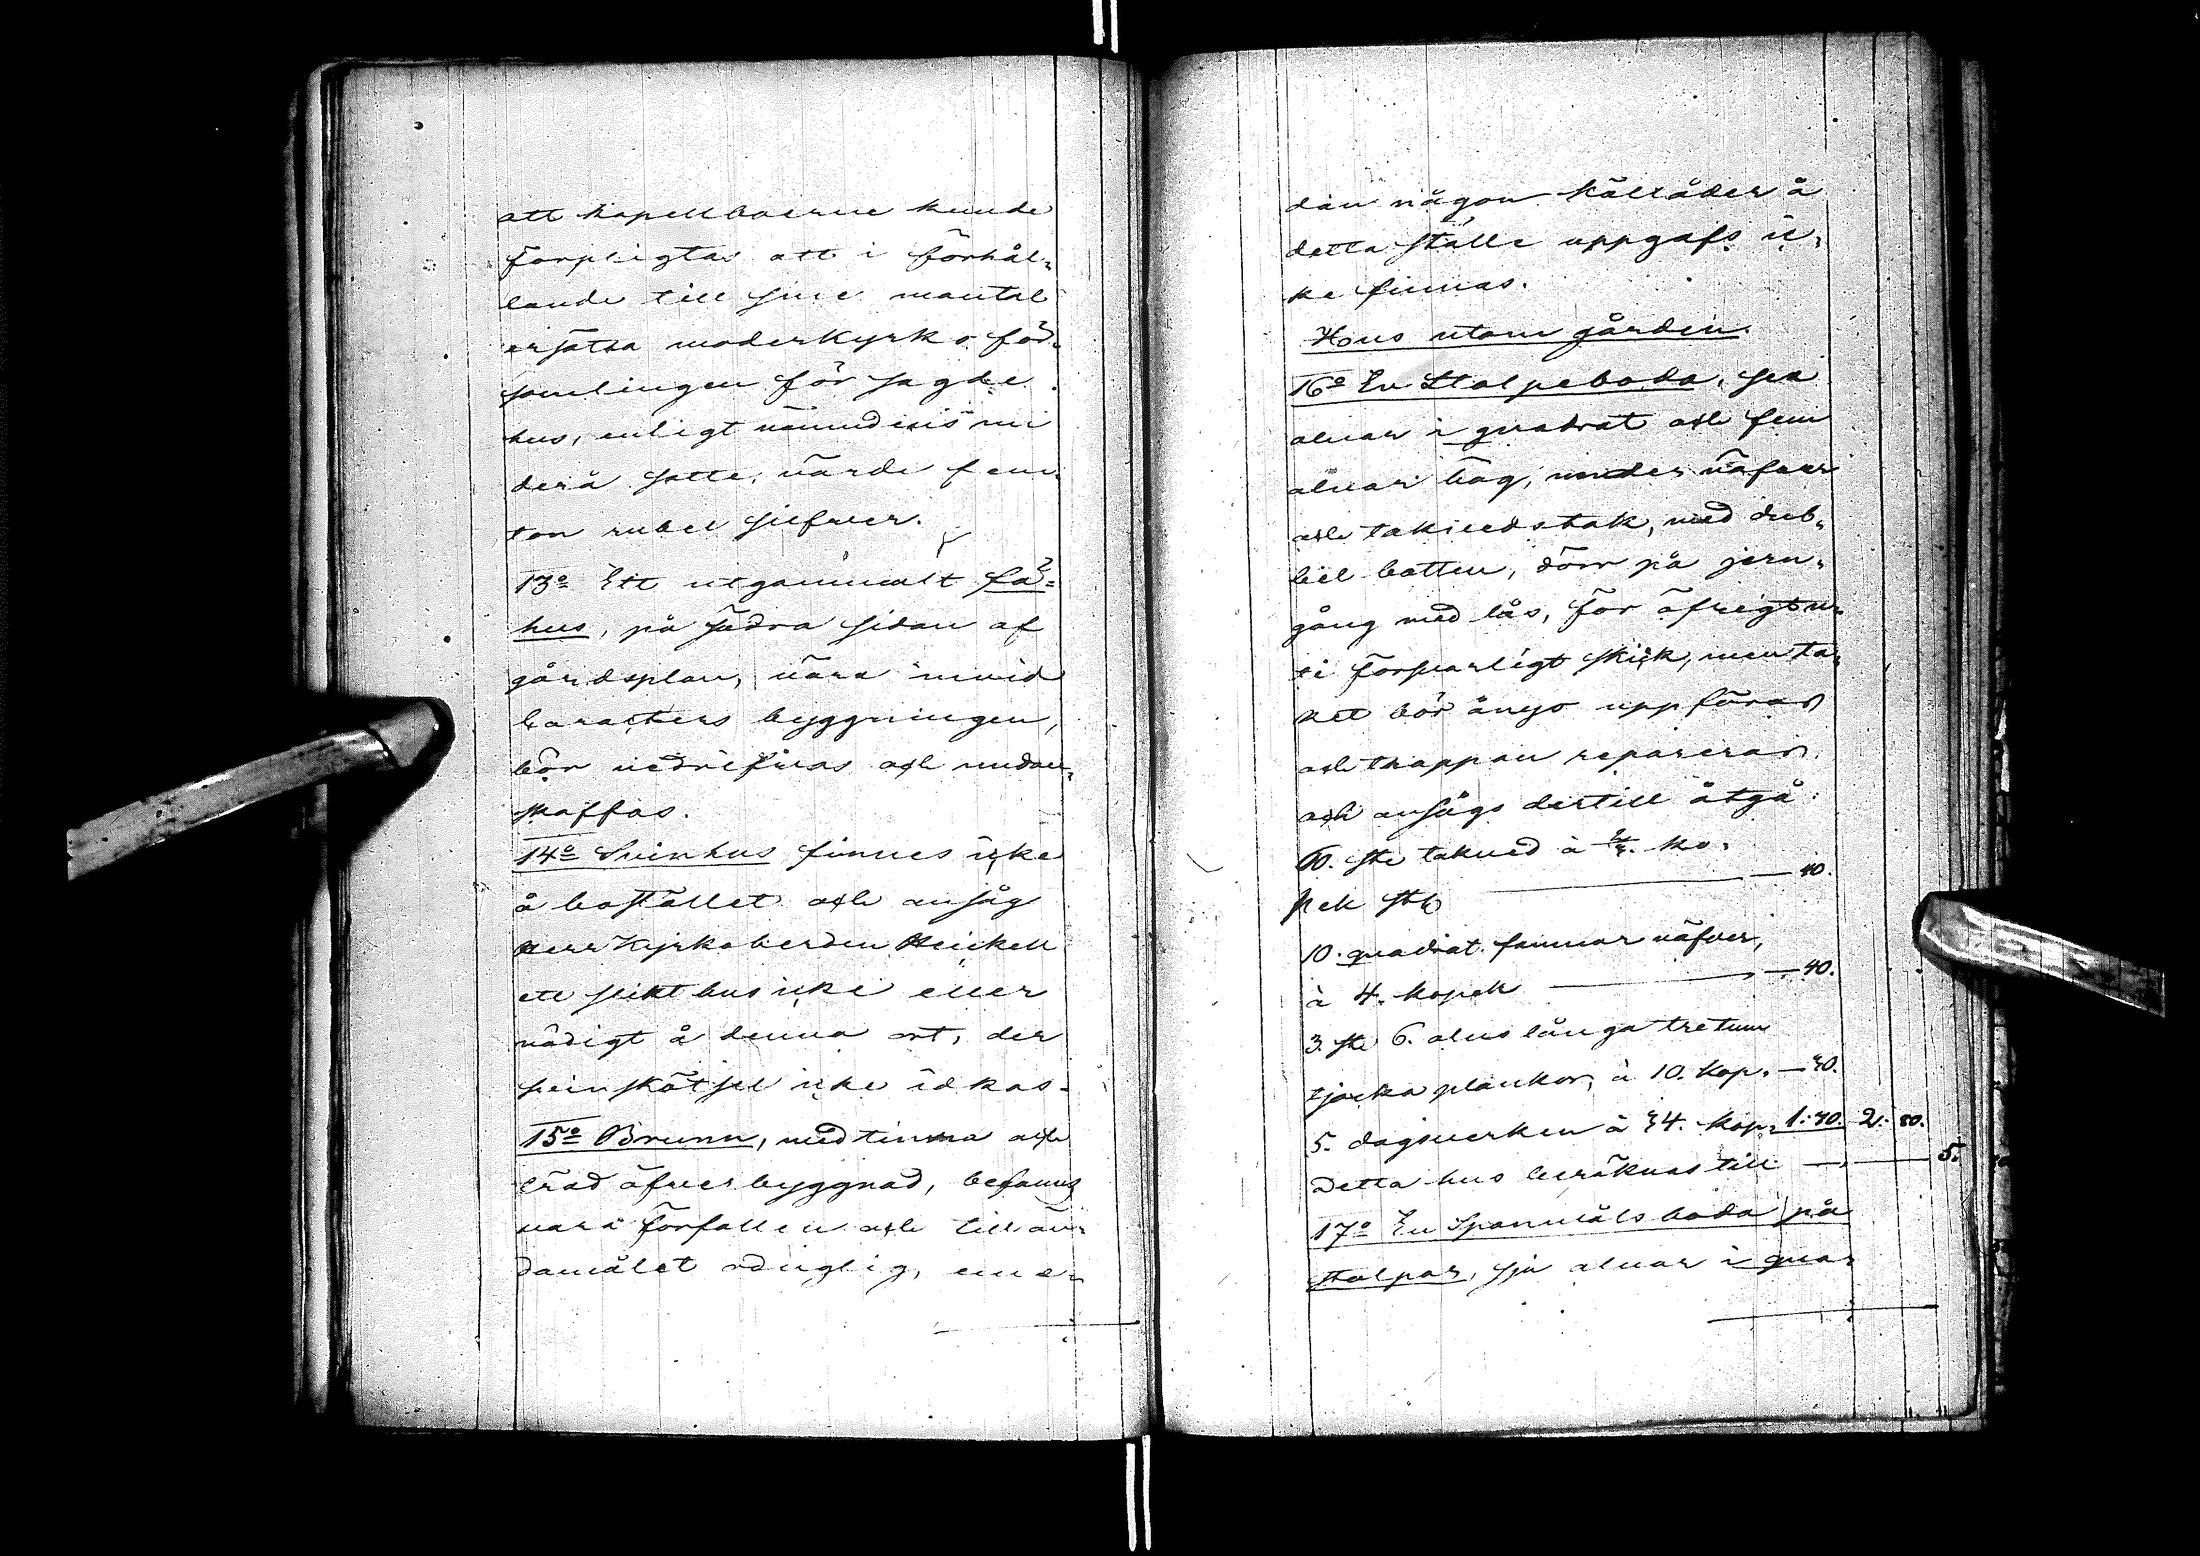 att kapellboerne kunde
förpligtas att i förhål-
lande till sine mantal
ersätta moderkyrko för-
samlingen för sagde
hus, enligt nämndens nu
derå satte, värde fem-
ton rubel silfver.
13o Ett utgammalt fä-
hus, på södra sidan af
gårdsplan, nära invid
karacters byggningen,
bör nedrifvas och undan-
skaffas.
14o Svinhus finnes icke
å bostället och ansåg
Herr Kyrkoherden Heickell
ett slikt hus icke eller
nödigt å denna ort, der
svinskötsel icke idkas.
15o Brunn, med tinna och
träd öfverbyggnad, befanns
vara förfallen och till än-
damålet oduglig, eme-
dan någon källåder å
detta ställe uppgafs ic-
ke finnas.
Hus utom gården.
16o En Stolpeboda, sex
alnar i quadrat och fem
alnar hög, under näfver
och takveds tak, med dub-
bel botten, dörr på jern-
gång med lås, för öfrigt u-
ti försvarligt skick, men ta-
ket bör ånyo uppföras
och trappan repareras
och ansågs dertill åtgå:
60. st. takved à 2/3. ko-
pek st. — 40.
10. quadrat famnar näfver,
à 4. kopek — 40.
3. st. 6. alns långa tretum
tjocka plankor, à 10. kop. — 30.
5. dagsverken à 34. kop. 1:70. 2:80.
Detta hus beräknas till — 5.
17o En Spannmåls boda på
stolpar, sju alnar i qua-